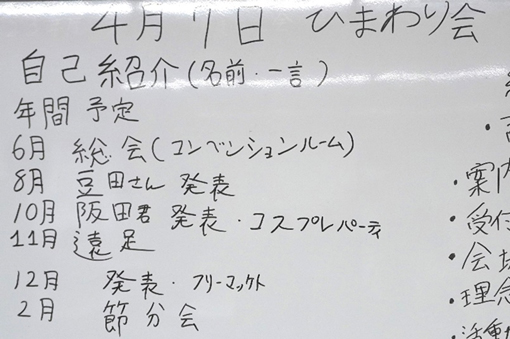 4月7日 ひまわり会
自己紹介(名前・一言)
年間 予定
6月 総会(コンベンションルーム)
8月 豆田さん 発表
10月 阪田君 発表・コスプレパーティ
11月 遠足
12月 発表・フリーマッケト
2月 節分会
・案内
・受付
・会場
・理念
・活動